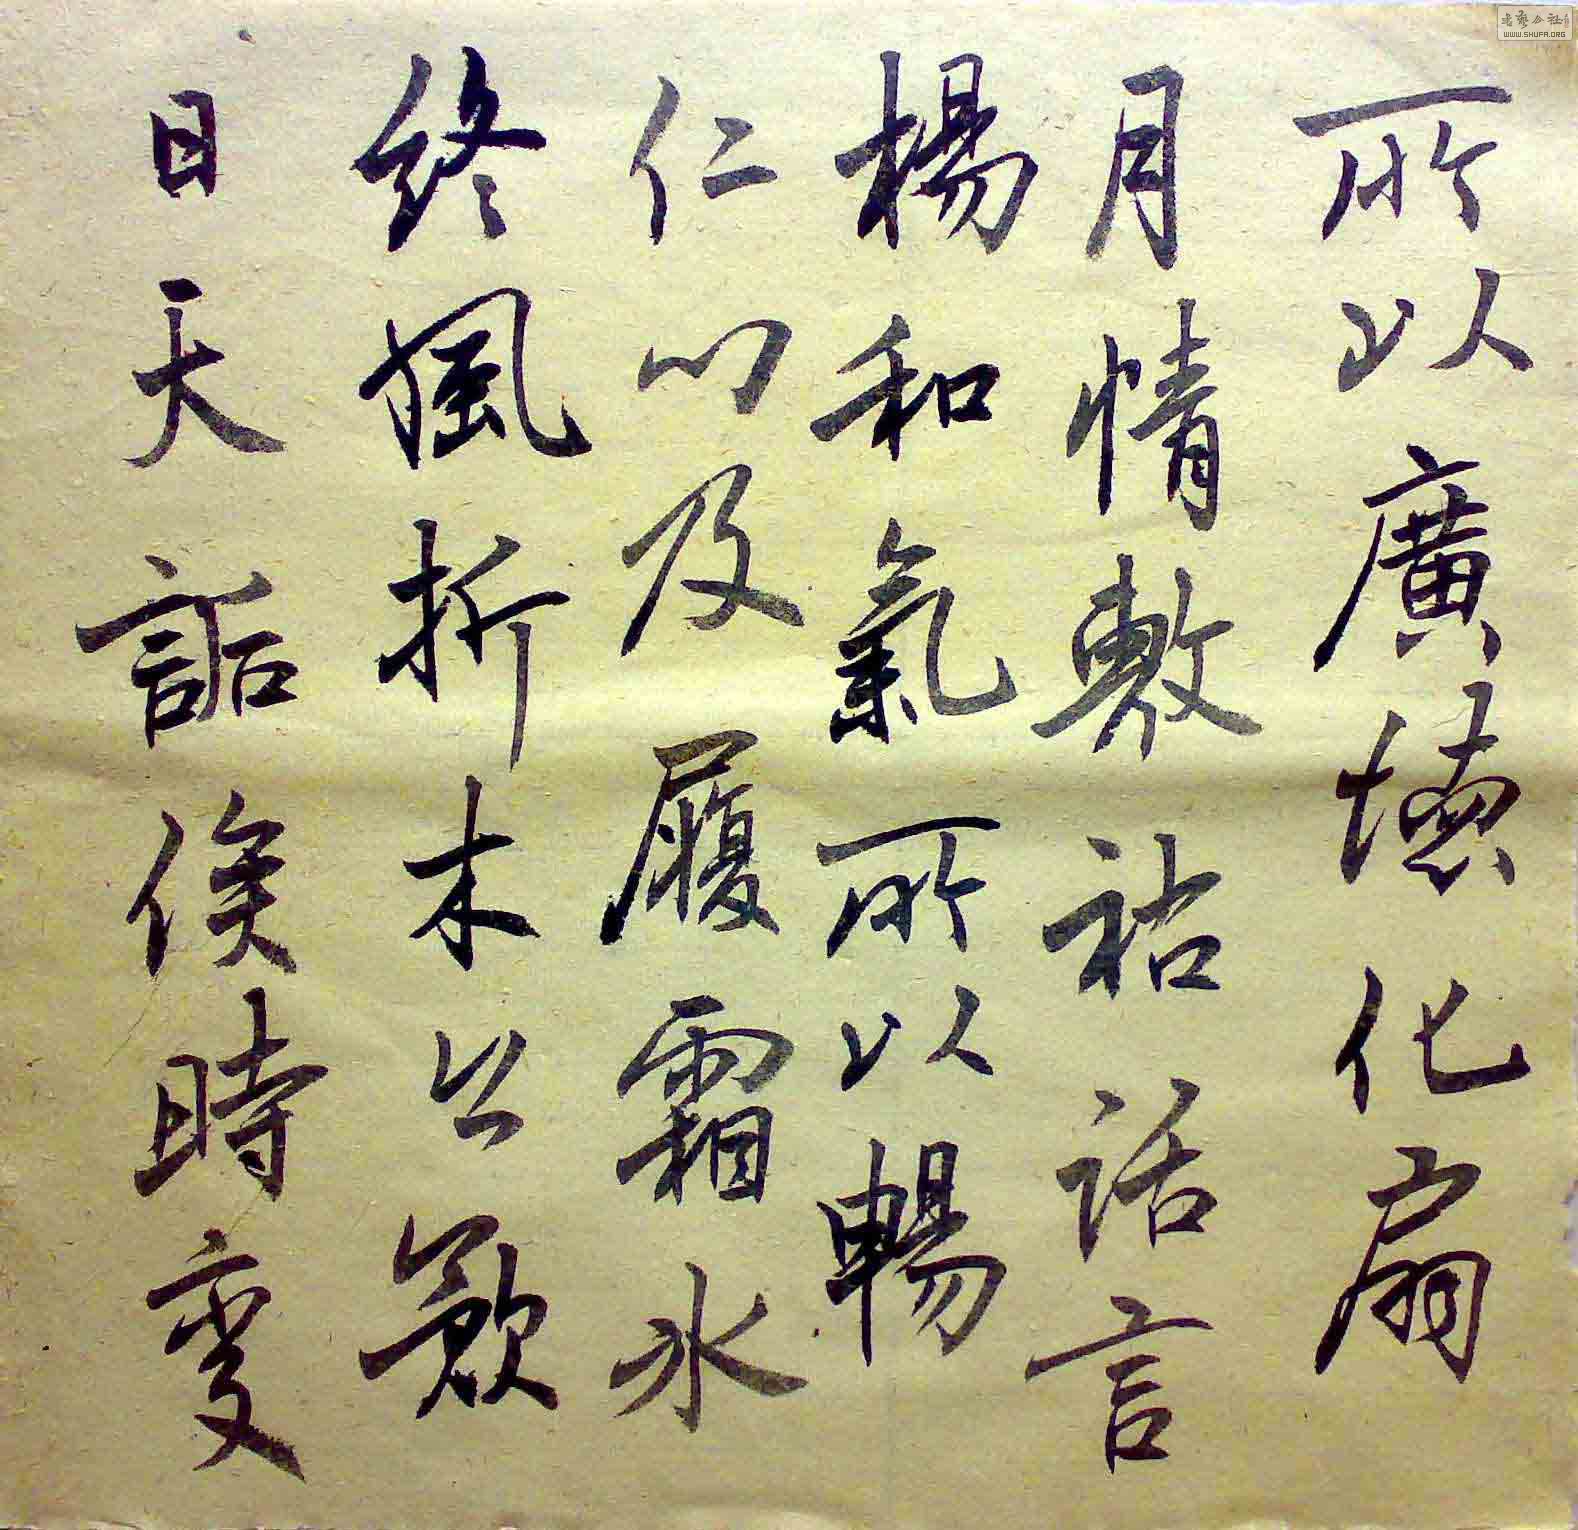 所以廣德化扇
月情敷祜話言
楊和氣所以暢
仁心及履霜氷
終風折木公歎
日天詬俟時變
書藝公社
WWW.SHUFA.ORG